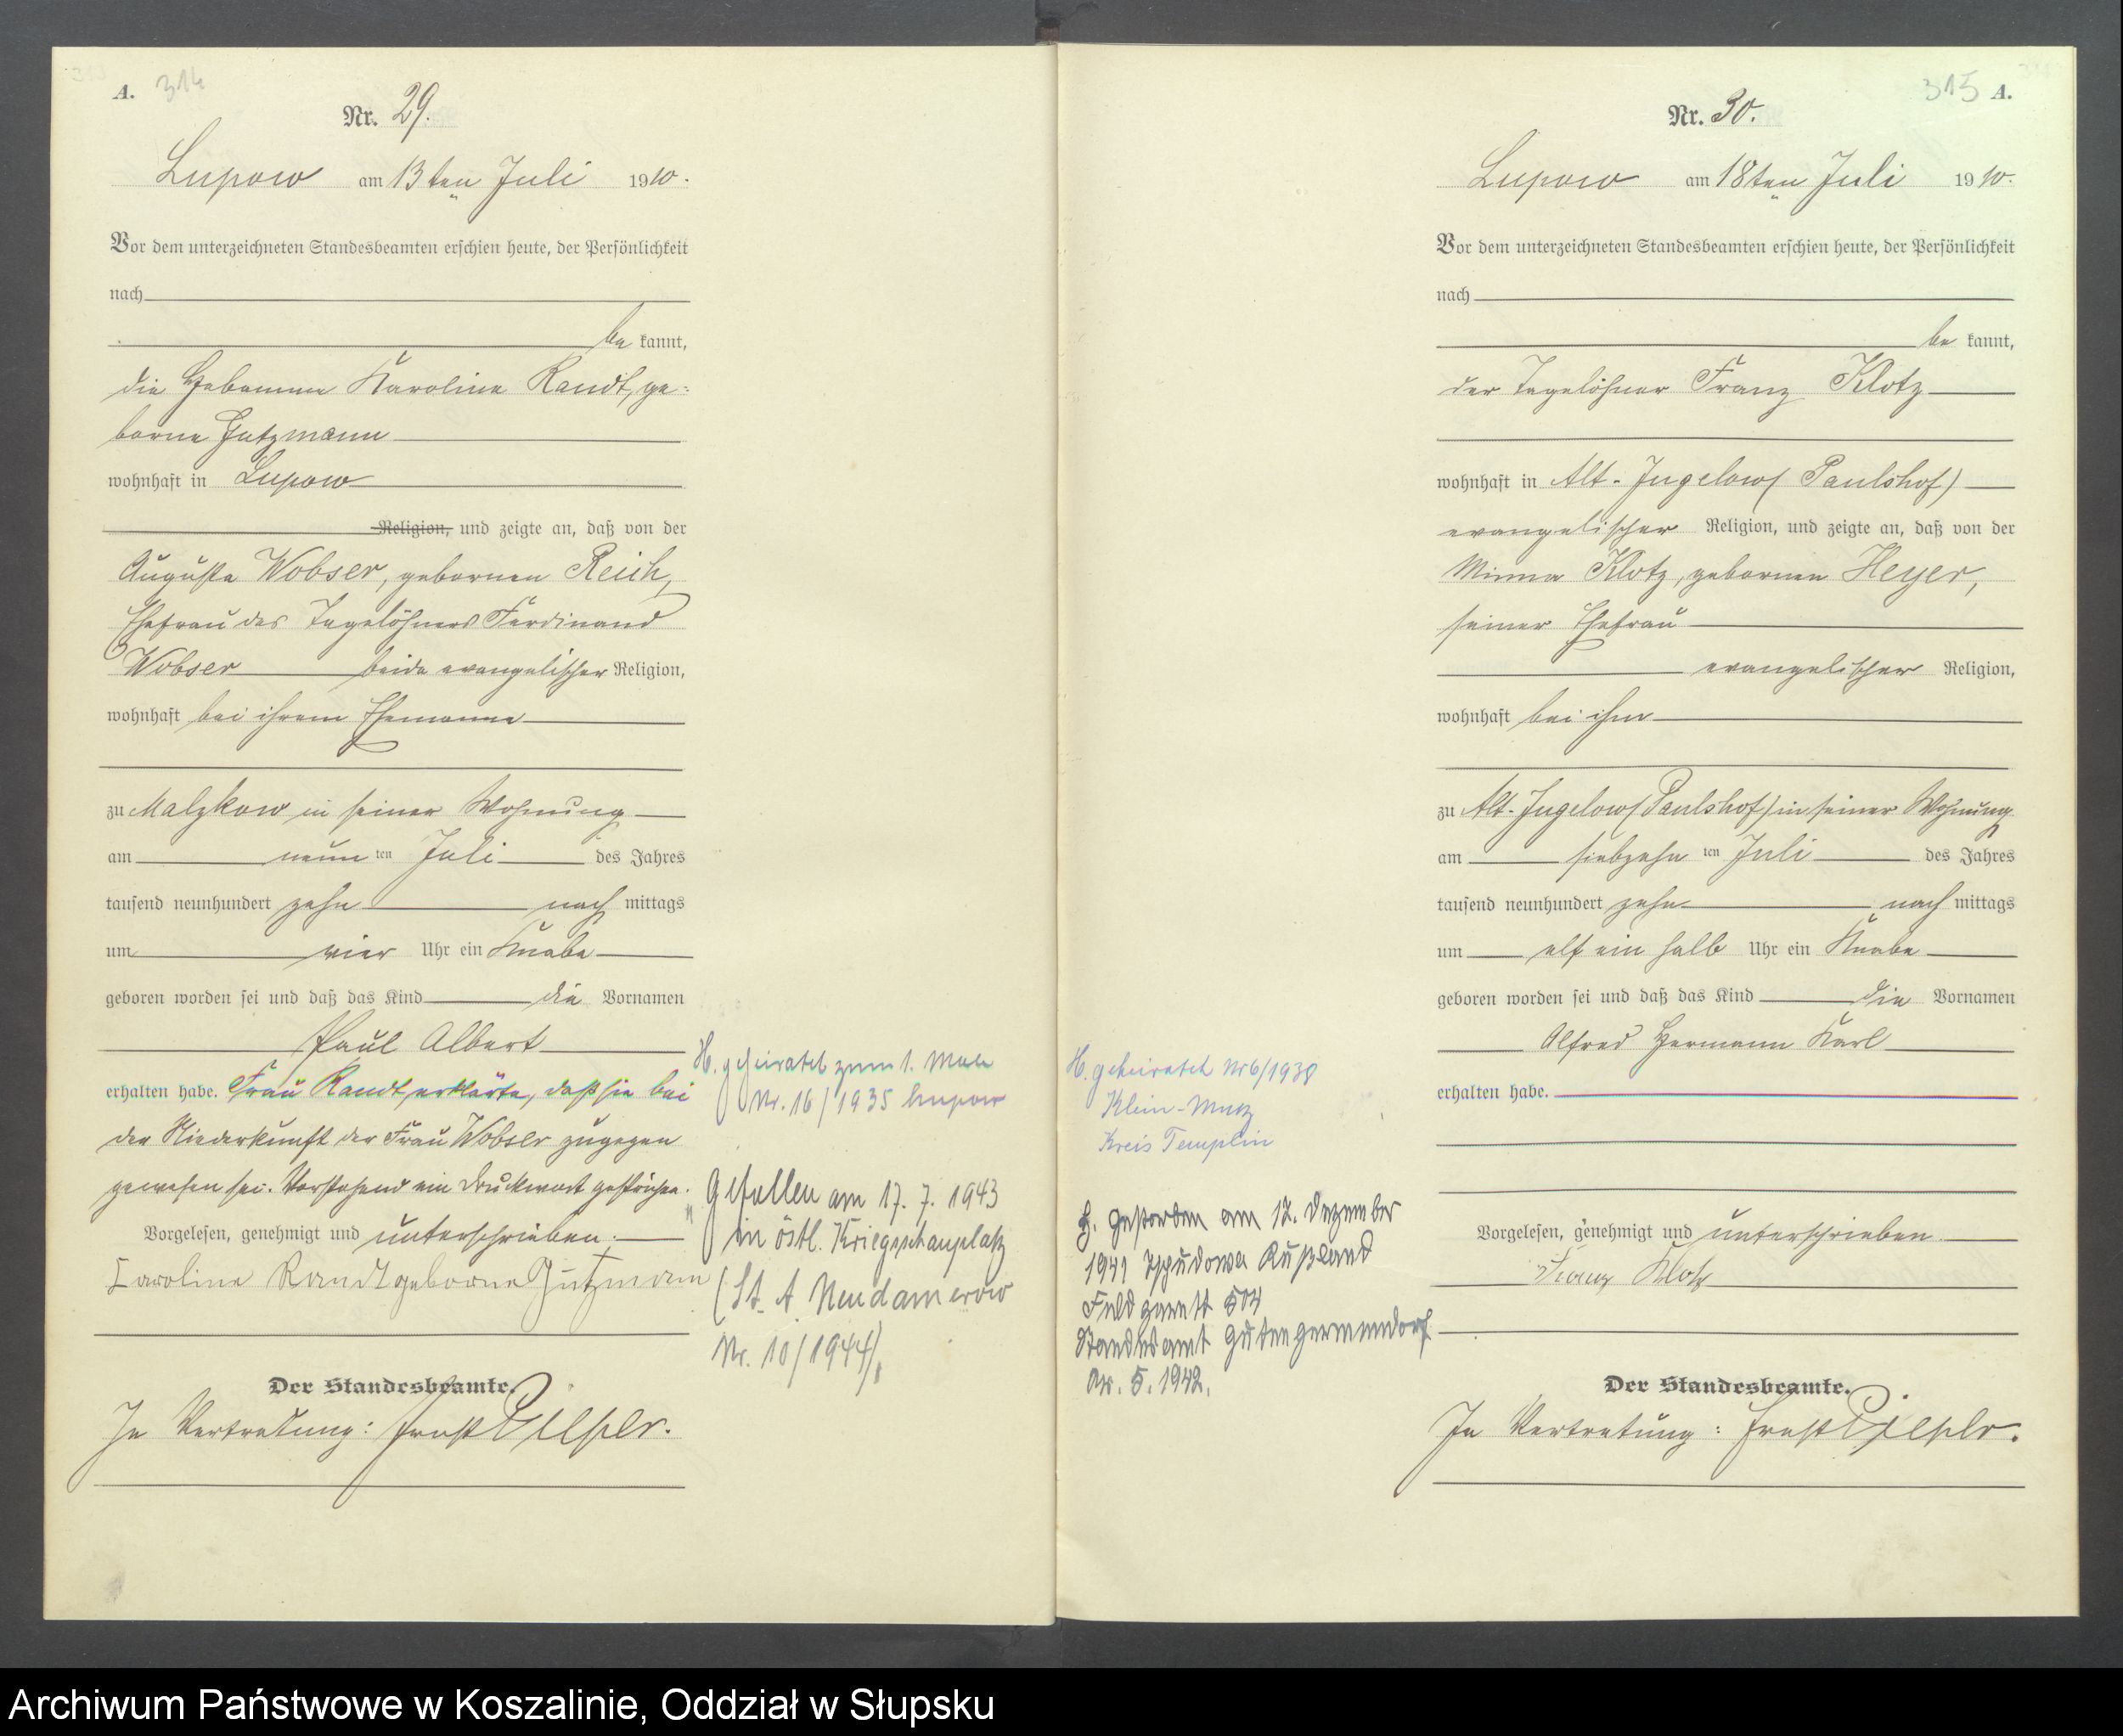 A. 314
Nr. 29.
Lupow am 13ten Juli 1910.
Vor dem unterzeichneten Standesbeamten erschien heute, der Persönlichkeit
nach
be kannt,
die Hebamme Karoline Randt, ge-
borne Gutzmann
wohnhaft in Lupow
Religion, und zeigte an, daß von der
Auguste Wobser, gebornen Reich,
Ehefrau des Tagelöhners Ferdinand
Wobser beide evangelischer Religion,
wohnhaft bei ihrem Ehemanne
zu Malzkow in seiner Wohnung
am neun ten Juli des Jahres
tausend neunhundert zehn nach mittags
um vier Uhr ein Knabe
geboren worden sei und daß das Kind die Vornamen
Paul Albert
erhalten habe. Frau Randt erklärte, daß sie bei
der Niederkunft der Frau Wobser zugegen
gewesen sei. Vorstehend ein Druckwort gestrichen.
Vorgelesen, genehmigt und unterschrieben.
Caroline Randt geborne Gutzmann
Der Standesbeamte.
In Vertretung: Ernst
H. geheiratet zum 1. Male
Nr. 16/1935 Lupow
Gefallen am 17. 7. 1943
im östl. Kriegsschauplatz
(St. A Neudamerow
Nr. 10/1944)
315 A.
Nr. 30.
Lupow am 18ten Juli 1910.
Vor dem unterzeichneten Standesbeamten erschien heute, der Persönlichkeit
nach
be kannt,
der Tagelöhner Franz Klotz
wohnhaft in Alt-Jugelow (Paulshof)
evangelischer Religion, und zeigte an, daß von der
Minna Klotz, gebornen Heyer,
seiner Ehefrau
evangelischer Religion,
wohnhaft bei ihm
zu Alt-Jugelow (Paulshof) in seiner Wohnung
am siebzehn ten Juli des Jahres
tausend neunhundert zehn nach mittags
um elf ein halb Uhr ein Knabe
geboren worden sei und daß das Kind die Vornamen
Alfred Hermann Karl
erhalten habe.
Vorgelesen, genehmigt und unterschrieben.
Franz Klotz
Der Standesbeamte.
In Vertretung: Ernst
H. geheiratet Nr 6/1938
Klein-Mutz
Kreis Templin
H. gestorben am 12. Dezember
1941 Rußland
504
Standesamt Gutengermendorf
Nr. 5. 1942.
Archiwum Państwowe w Koszalinie, Oddział w Słupsku